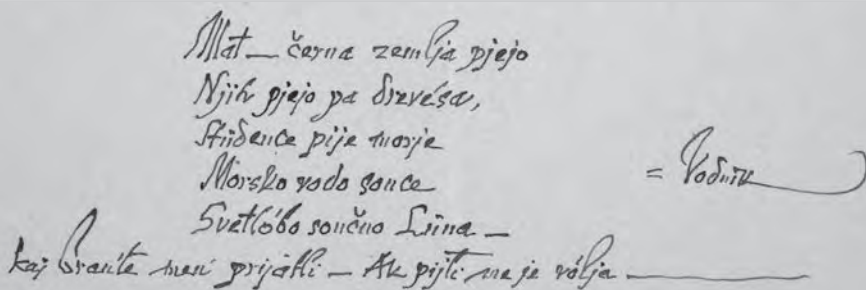 Mat — černa zemlja pjejo
Njih pjejo pa drevésa,
Studence pije morje
Morsko vodo sonce
= Vodnik
Svetlóbo sončno Luna —
kaj branite meni prijátli — Ak pijti me je vólja —